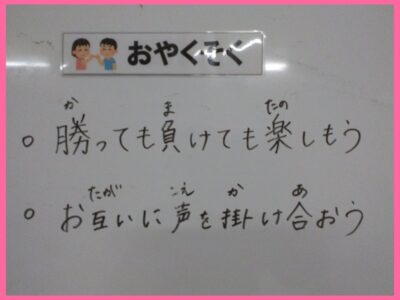 おやくそく
か ま たの
○ 勝っても負けても楽しもう
たが こえ か あ
○ お互いに声を掛け合おう